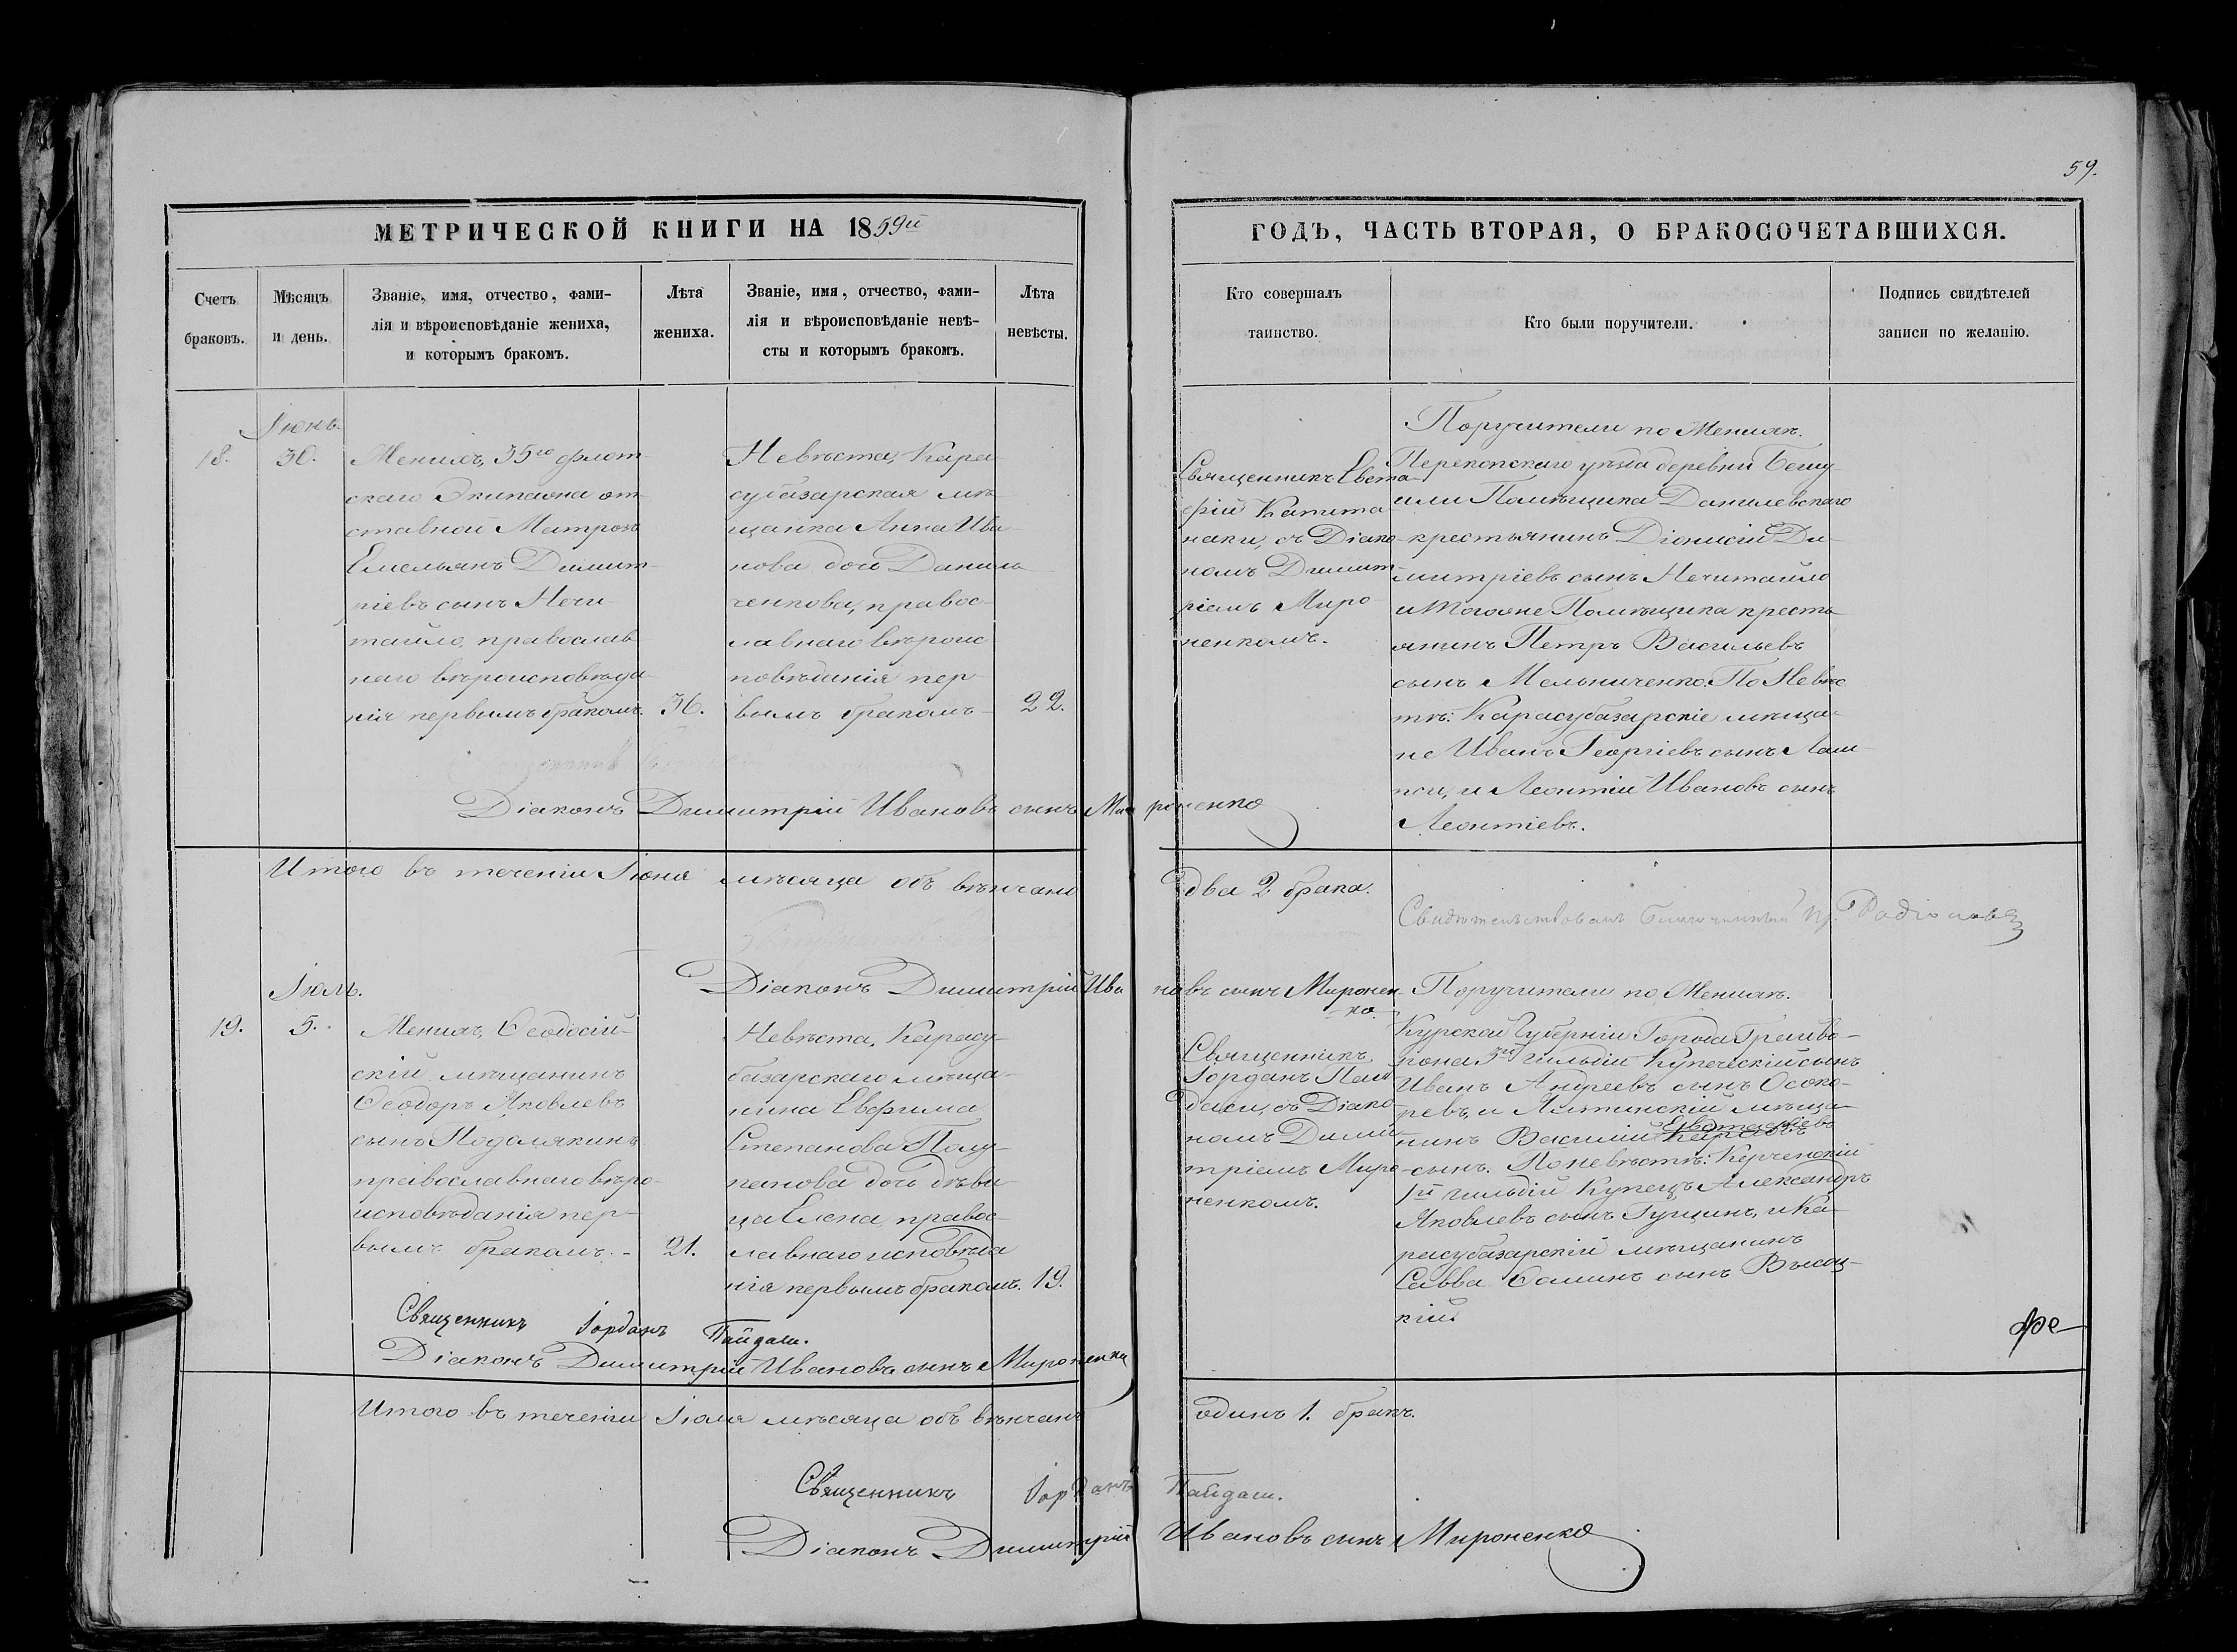 59.
МЕТРИЧЕСКОЙ КНИГИ НА 1859й
ГОДЪ, ЧАСТЬ ВТОРАЯ, О БРАКОСОЧЕТАВШИХСЯ.
Счетъ
браковъ.
Мѣсяцъ
и день.
Званіе, имя, отчество, фами-
лія и вѣроисповѣданіе жениха,
и которымъ бракомъ.
Лѣта
жениха.
Званіе, имя, отчество, фами-
лія и вѣроисповѣданіе невѣ-
сты и которымъ бракомъ.
Лѣта
невѣсты.
Кто совершалъ
таинство.
Кто были поручители.
Подпись свидѣтелей
записи по желанію.
18.
Іюнь.
30.
Женихъ, 35го флот-
скаго Экипажа от-
ставной Матрозъ
Емельянъ Димит-
ріевъ сынъ Нечи-
тайло, православ-
наго вѣроисповѣда-
нія первымъ бракомъ.
36.
Невѣста, Кара-
субазарская мѣ-
щанка Анна Ива-
нова дочь Даниль-
ченкова, правос-
лавнаго вѣроис-
повѣданія пер-
вымъ бракомъ
22.
Священникъ Евста-
фій
наки, съ Діако-
номъ Димит-
ріемъ Миро-
ненкомъ.
Поручители по Женихѣ.
Перекопскаго уѣзда деревни
Помѣщика Данилевскаго
крестьянинъ Діонисій Ди-
митріевъ сынъ Нечитайло
и тогоже Помѣщика кресть-
янинъ Петръ Васильевъ
сынъ Мельниченко. По Невѣс-
тѣ: Карасубазарскіе мѣща-
не Иванъ Георгіевъ сынъ
и Леонтій Ивановъ сынъ
Леонтіевъ.
Діаконъ Димитрій Ивановъ сынъ Мироненко
Итого въ теченіи Іюня мѣсяца объ вѣнчано два 2 брака.
Свидѣтельствовалъ Благочинный Родіоновъ
Діаконъ Димитрій Ивановъ сынъ Миронен-
ко.
19.
Іюль.
5.
Женихъ, Ѳеодосій-
скій мѣщанинъ
Ѳеодоръ Яковлевъ
сынъ Подолякинъ
православнаго вѣро-
исповѣданія пер-
вымъ бракомъ. -
21.
Невѣста, Карасу-
базарскаго мѣща-
нина Евфима
Степанова
дочь дѣви-
ца Елена правос-
лавнаго исповѣда-
нія первымъ бракомъ.
19.
Священникъ
Іорданъ Пай-
даси, съ Діако-
номъ Дими-
тріемъ Миро-
ненкомъ.
Поручители по Женихѣ.
Курской Губерніи Города Грайво-
рона 3й гильдіи Купеческій сынъ
Иванъ Андреевъ сынъ Осоко-
ревъ, и Ялтинскій мѣща-
нинъ Василій Евстафіевъ
сынъ. По невѣстѣ: Керченскій
1й гильдіи Купецъ Александръ
Яковлевъ сынъ Гущинъ, и Ка-
расубазарскій мѣщанинъ
Савва Ѳоминъ сынъ Высоц-
кій.
Священникъ Іорданъ Пайдаси.
Діаконъ Димитрій Ивановъ сынъ Мироненко
Итого въ теченіи Іюля мѣсяца объ вѣнчанъ одинъ 1. бракъ.
Священникъ Іорданъ Пайдаси.
Діаконъ Димитрій Ивановъ сынъ Мироненко